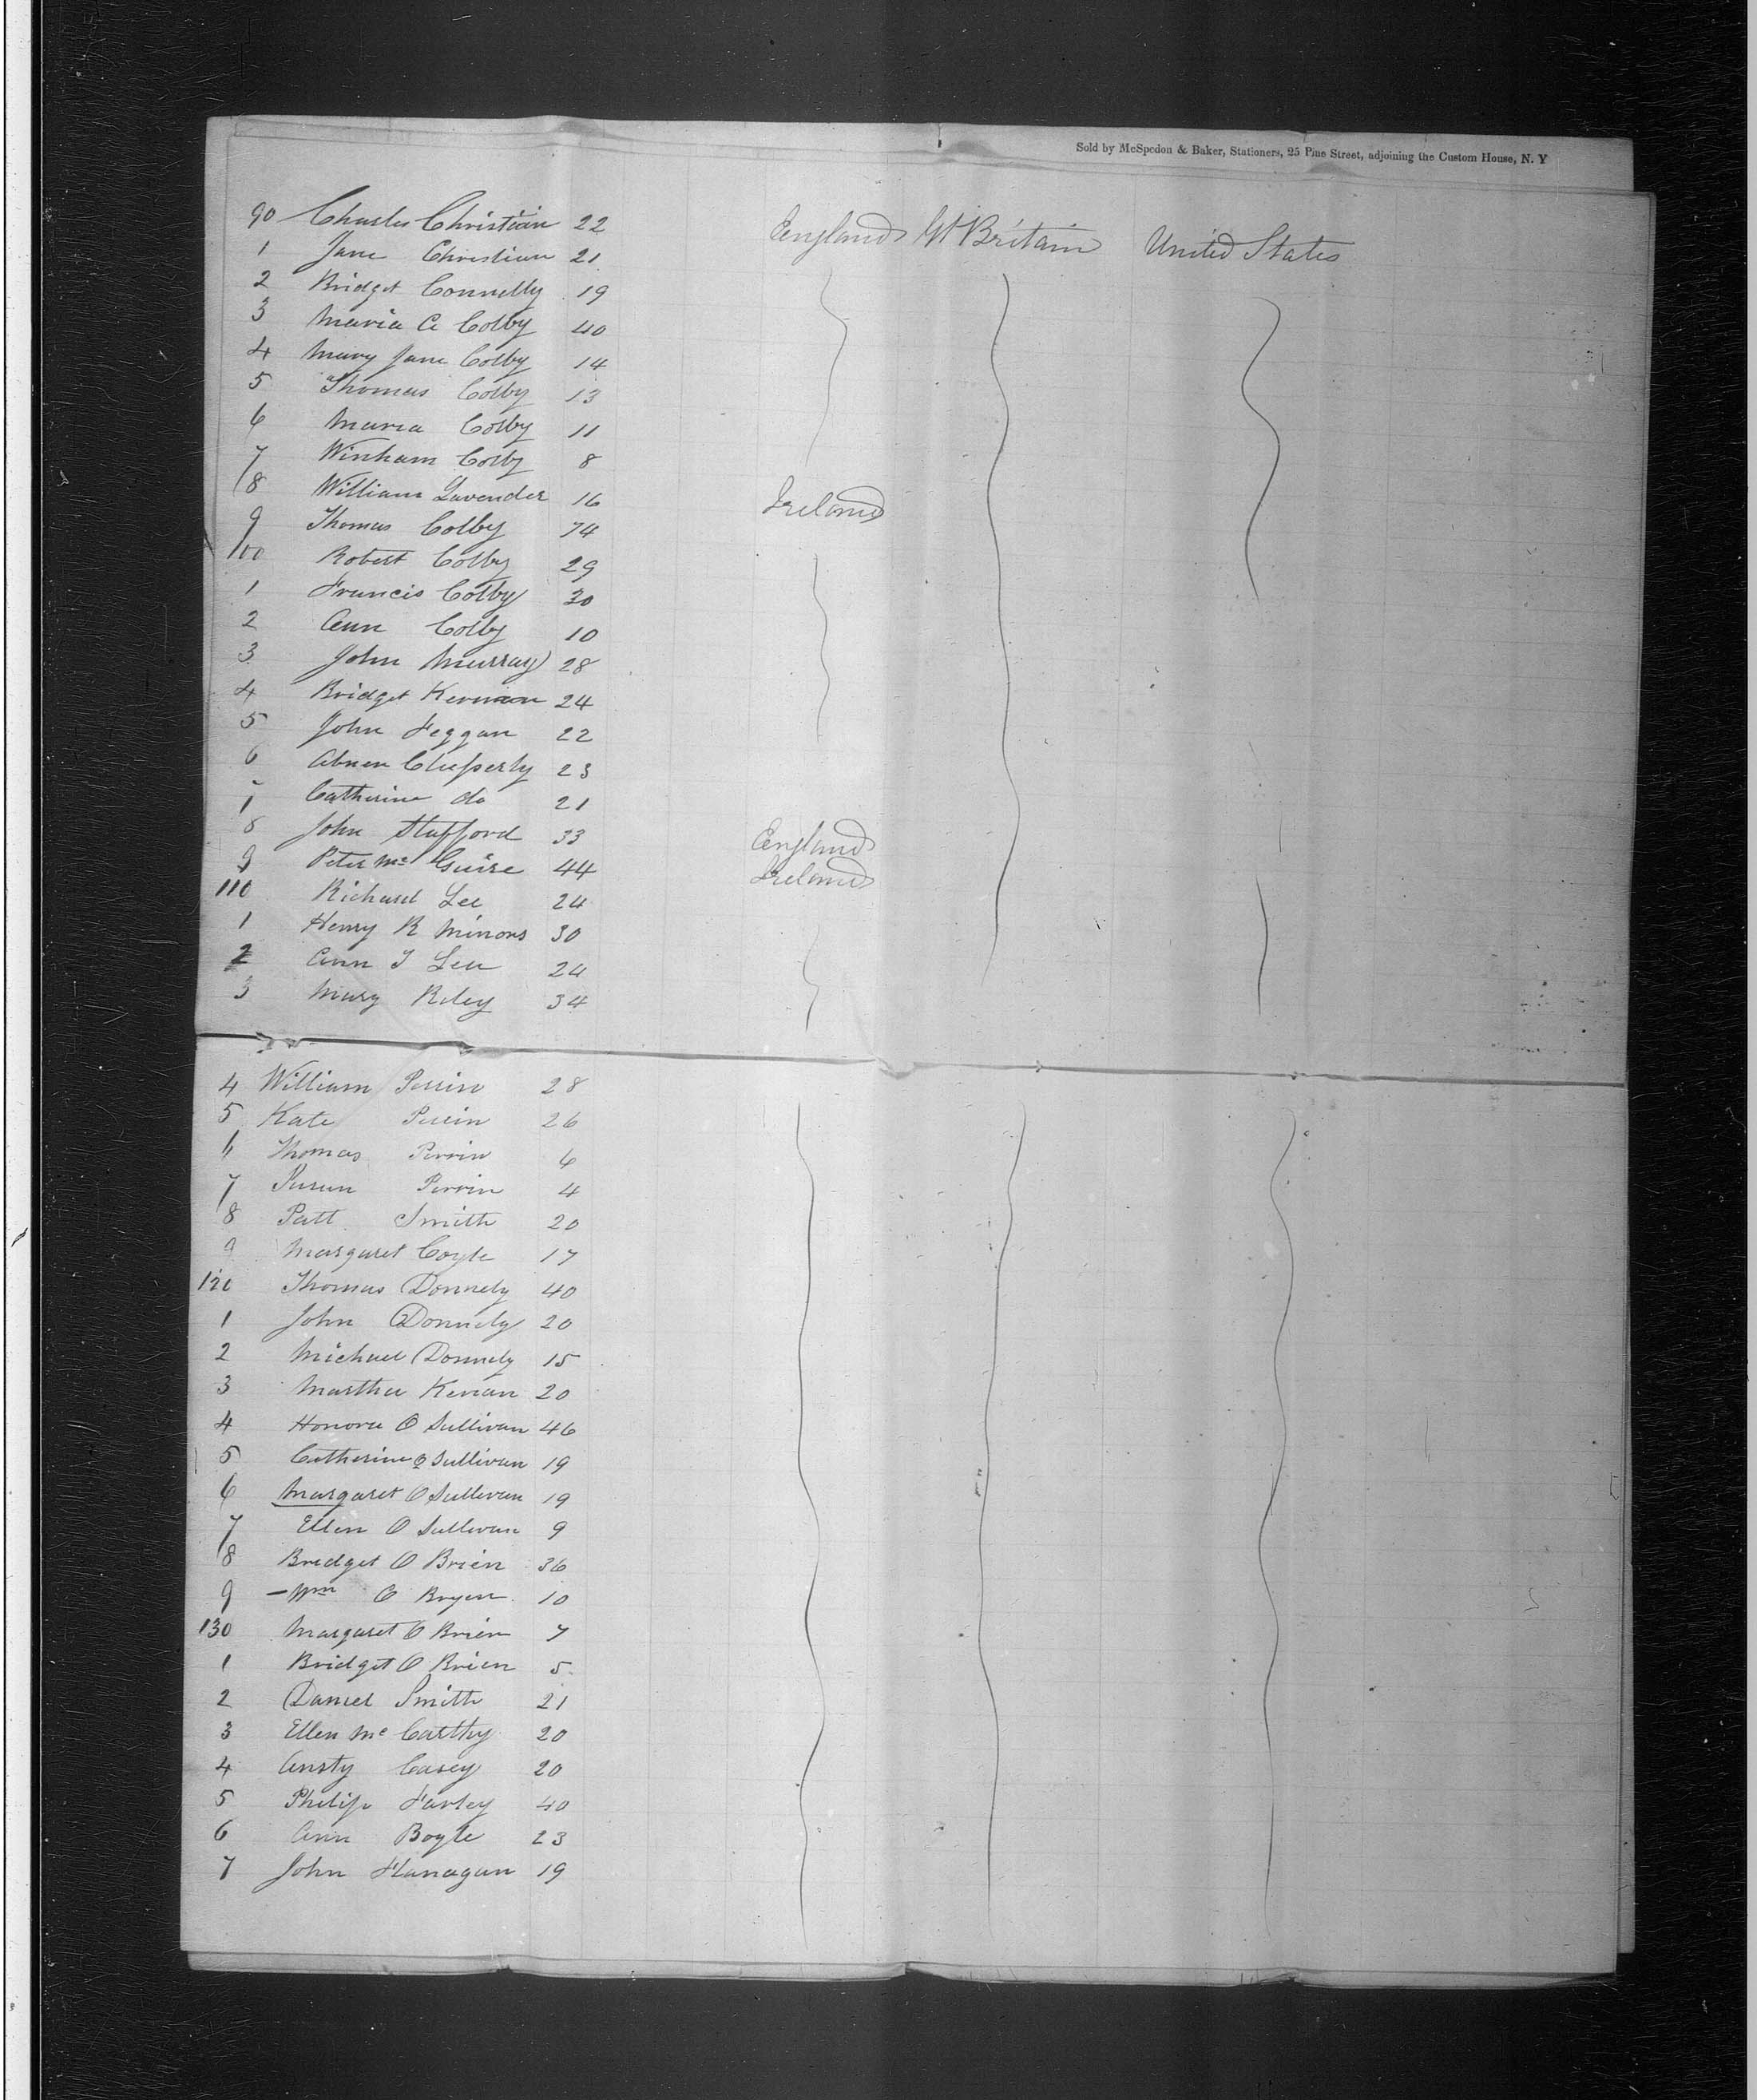 Sold by McSpedon & Baker, Stationers, 25 Pine Street, adjoining the Custom House, N. Y
90 Charles Christian 22 England Gt Britain United States
1 Jane Christian 21
2 Bridget Connelly 19
3 Maria C Colby 40
4 Mary Jane Colby 14
5 Thomas Colby 13
6 Maria Colby 11
7 Winham Colby 8
8 William Lavender 16 Ireland
9 Thomas Colby 74
100 Robert Colby 29
1 Francis Colby 30
2 Ann Colby 10
3 John Murray 28
4 Bridget Kernan 24
5 John Feggan 22
6 Abner 23
7 Catherine do 21
8 John Stafford 33 England
9 Peter Mc Guire 44 Ireland
110 Richard Lee 24
1 Henry R Minors 30
2 Ann J Lee 24
3 Mary Riley 34
4 William Perrin 28
5 Kate Perrin 26
6 Thomas Perrin 6
7 Susan Perrin 4
8 Patt Smith 20
9 Margaret Coyle 17
120 Thomas Donnely 40
1 John Donnely 20
2 Michael Donnely 15
3 Martha Kernan 20
4 Honora O Sullivan 46
5 Catherine O Sullivan 19
6 Margaret O Sullivan 19
7 Ellen O Sullivan 9
8 Bridget O Brien 36
9 - Wm O Bryen 10
130 Margaret O Brien 7
1 Bridget O Brien 5
2 Daniel Smith 21
3 Ellen Mc Carthy 20
4 Ansty Casey 20
5 Philip Farley 40
6 Ann Boyle 23
7 John Flanagan 19